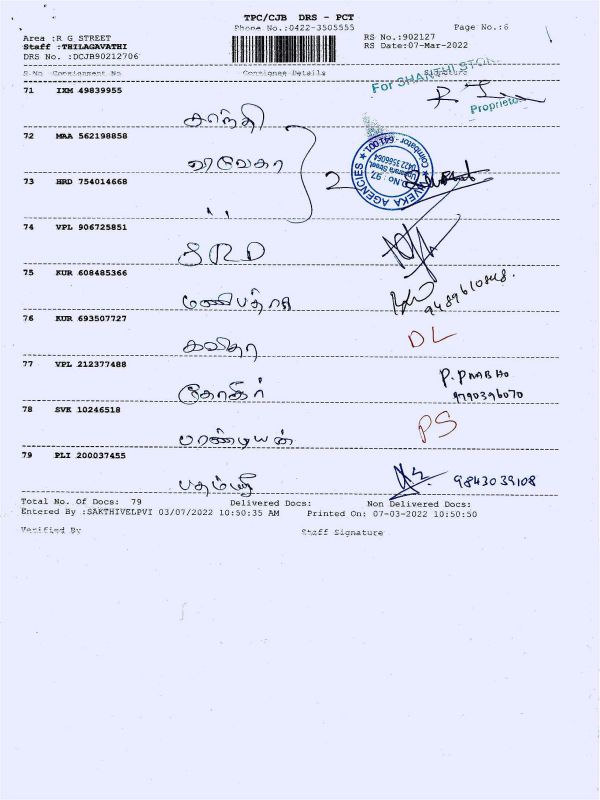 TPC/CJB DRS - PCT
Phone No.:0422-3505555
Page No.:6
Area :R G STREET
RS No.:902127
Staff :THILAGAVATHI
RS Date:07-Mar-2022
DRS No. :DCJB90212706
S.No Consignment No Consignee Details Signature
For SHANTHI STORE
Proprietor
71 IXM 49839955
சாந்தி
72 MAA 562198858
விவேகா
73 HRD 754014668
" 2
VEKA AGENCIES
D.No : 97
Street
0422 3566064
Coimbator - 641 001
74 VPL 906725851
SRD
75 KUR 608485366
9489610848.
76 KUR 693507727
கவிதா
DL
77 VPL 212377488
P. PRABHO
9790396070
78 SVK 10246518
பாண்டியன்
PS
79 PLI 200037455
பதம்ஸ்ரீ
9843039108
Total No. Of Docs: 79 Delivered Docs: Non Delivered Docs:
Entered By :SAKTHIVELPVI 03/07/2022 10:50:35 AM Printed On: 07-03-2022 10:50:50
Verified By Staff Signature